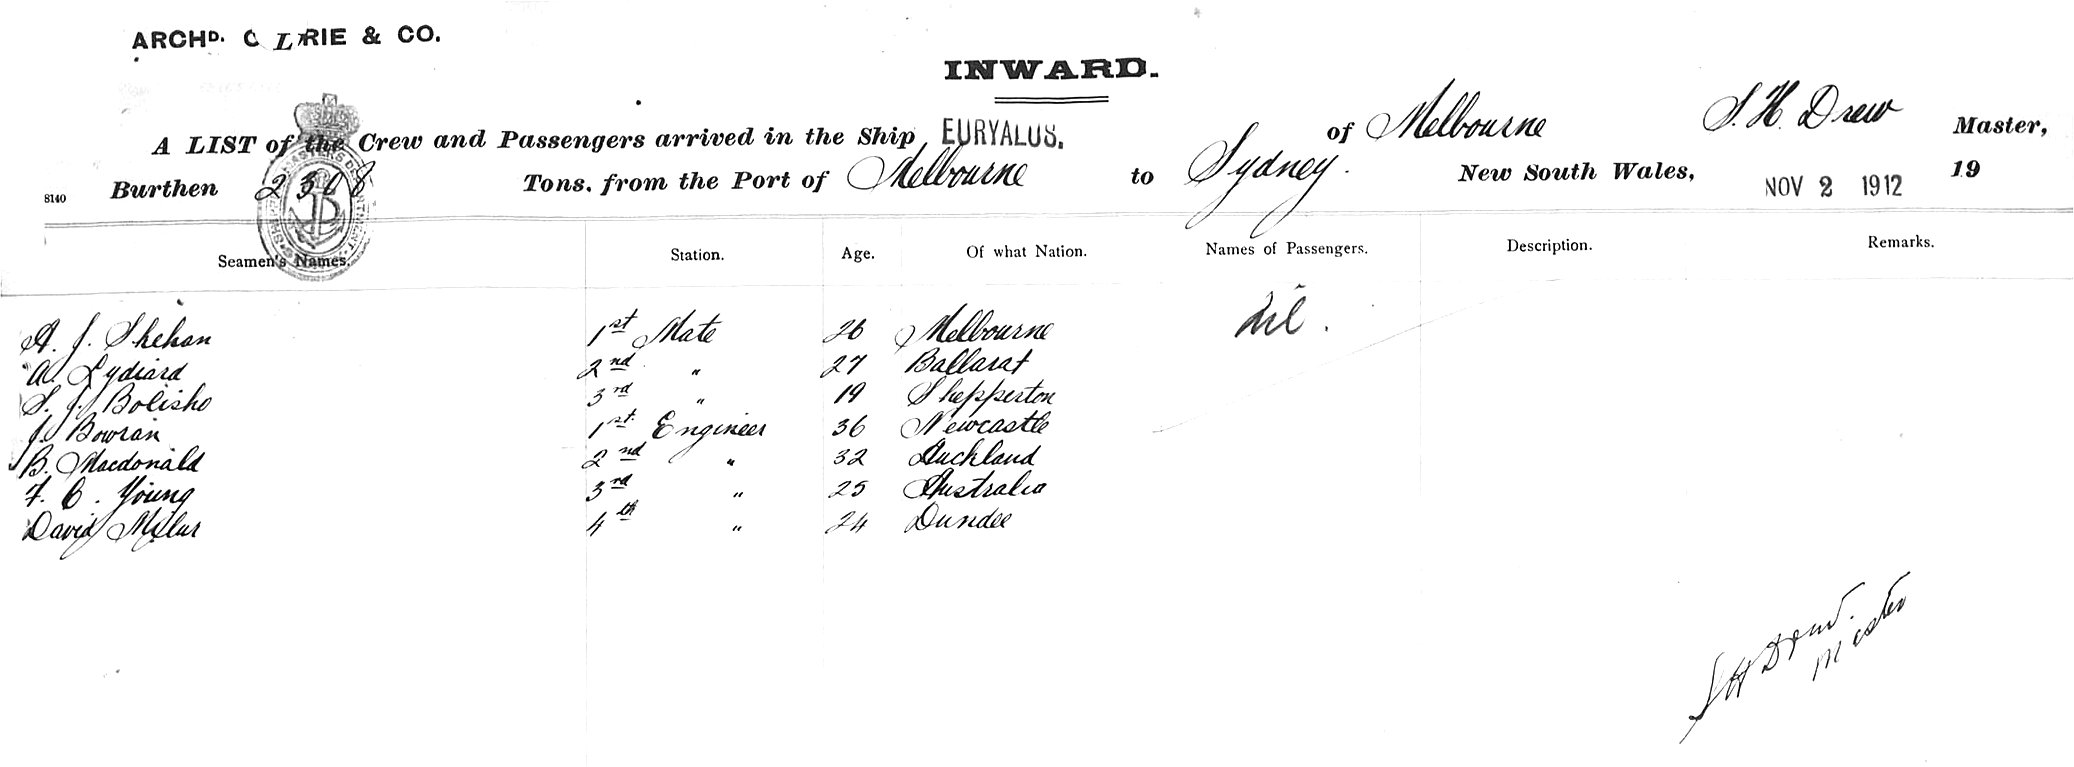 ARCHD. CURRIE & CO.
INWARD.
A LIST of the Crew and Passengers arrived in the Ship EURYALUS. of Melbourne S. H. Drew Master,
8140 Burthen 2308 Tons, from the Port of Melbourne to Sydney. New South Wales, NOV 2 1912 19
Seamen's Names. Station. Age. Of what Nation. Names of Passengers. Description. Remarks.
A. J. Shehan 1st Mate 26 Melbourne Nil.
A. Lydiard 2nd " 27 Ballarat
S. J. Bolisho 3rd " 19 Shepperton
J. Bowran 1st Engineer 36 Newcastle
B. Macdonald 2nd " 32 Auckland
F. C. Young 3rd " 25 Australia
David 4th " 24 Dundee
S H Drew.
Master